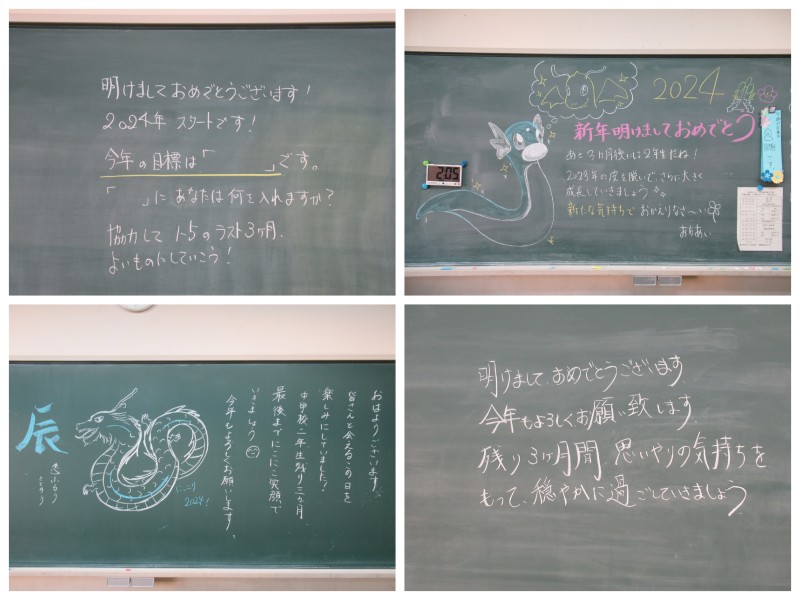 明けましておめでとうございます！
2024年 スタートです！
今年の目標は「　　　」です。
「　　」に あなたは何を入れますか？
協力して 1-5のラスト3ヶ月、
よいものにしていこう！
2024
新年明けましておめでとう
あと3カ月後には2年生だね！
2023年の皮を脱いで、さらに大きく
成長していきましょう
新たな気持ちで おかえりなさ〜い
2:05
おはようございます。
皆さんと会えるこの日を
楽しみにしていました！
最後までにこにこ笑顔で
いきましょう
今年もよろしくお願いします。
辰
2024!
明けまして、おめでとうございます
今年もよろしくお願い致します
残り3ヶ月間 思いやりの気持ちを
もって、穏やかに過ごしていきましょう